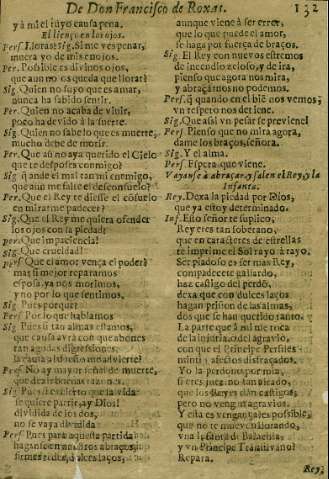 De Don Francisco de Roxas. 132
y à mi el tuyo causa pena.
El lienço en los ojos.
Per. Lloras? Sig. Si me ves penar,
muera yo de mis enojos.
Per. Possible es divinos ojos,
que aun no os queda que llorar?
Sig. Quien no supo que es amar,
nunca ha sabido sentir.
Per. Quien no acaba de vivir,
poco ha devido à la suerte.
Sig. Quien no sabe lo que es muerte,
mucho debe de morir.
Per. Que aun no aya querido el Cielo
que te desposes conmigo?
Sig. q ande el mal tan mi enemigo,
que aun me falte el desconsuelo?
Per. Que el Rey te diesse el consuelo
en mirarme padecer?
Sig. Que el Rey me quiera ofender
los ojos con la piedad?
per. Que impaciencia!
Sig. Que crueldad!
per. Que el amor vença el poder!
mas si mejor reparamos
esposa, ya nos morimos,
y no por lo que sentimos.
Sig. Pues porque?
Per. Por lo que hablamos
Sig. Pues si tan almas estamos,
que causa avrà con que abones
tan agudas digressiones.
la causa al dolor me advierte?
Per. No ay mayor señal de muerte,
que dezir buenas razones.
Sig. Pues si es cierto que la vida
se quiere partir, ay Dios!
dividida de los dos,
no se vaya dividida
Perf. Pues para aquesta partida
hagamos en nuestros abraços,
aunque viene à ser error,
que lo que puede el amor,
se haga por fuerça de braços.
Sig. El Rey con nuevos estremos
de incendio zeloso, y de ira,
pienso que agora nos mira,
y abraçarnos no podemos.
Per. q quando en el bie nos vemos,
vn respeto nos detiene.
Sig. Que assi vn pesar se previene!
Per. Pienso que no mira agora,
dame los braços, señora.
Sig. Y el alma.
Per. Espera, que viene.
Vayanse à abraçar, y salen el Rey, y la
Infanta.
Rey. Dexa la piedad por Dios,
que ya estoy determinado.
Inf. Esto señor te suplico,
Rey eres tan soberano,
que en caracteres de estrellas
te imprime el Sol rayo à rayo.
Ser piadoso es ser mas Rey,
compadecete gallardo,
haz castigo del perdõ,
dexa que con dulces laços
hagan prision de las almas,
dos que se han querido tanto.
La parte que à mi me toca
de la injuria, o del agravio,
con que el Principe Persiles
mintiò afectos disfraçados,
Yo la perdono por mia,
que los Reyes dàn castigos,
pero no vengan agravios.
Y esta es venganças possible,
que no te mueva llorando,
y vn Principe Transilvano?
Repara.
Rey,